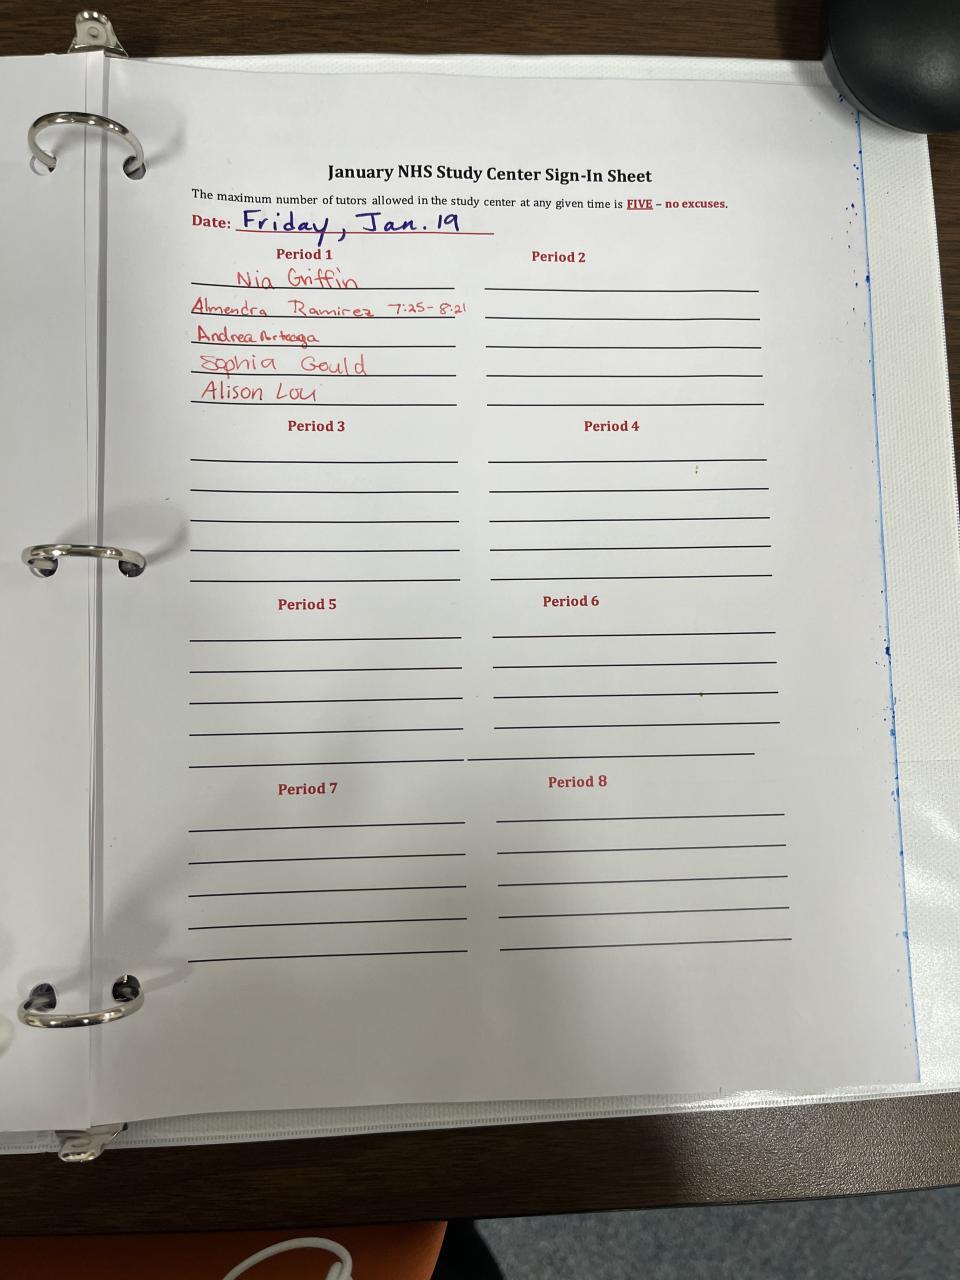 January NHS Study Center Sign-In Sheet
The maximum number of tutors allowed in the study center at any given time is FIVE – no excuses.
Date: Friday, Jan. 19
Period 1
Nia Griffin
Almendra Ramirez 7:25-8:21
Andrea Arteaga
Sophia Gould
Alison Lou
Period 2
Period 3
Period 4
Period 5
Period 6
Period 7
Period 8